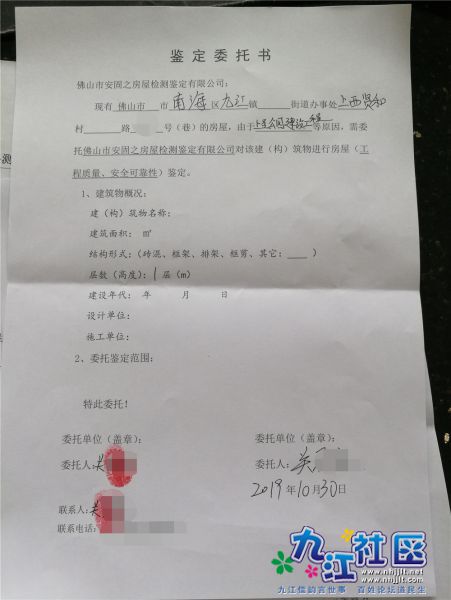 鉴定委托书
佛山市安固之房屋检测鉴定有限公司:
现有 佛山市 市 南海 区 九江 镇______街道办事处 上西贤和
村______路 号(巷)的房屋,由于 公园建设工程 等原因,需委
托佛山市安固之房屋检测鉴定有限公司对该建(构)筑物进行房屋(工
程质量、安全可靠性)鉴定。
1、建筑物概况:
建(构)筑物名称:
建筑面积: ㎡
结构形式:(砖混、框架、排架、框剪、其它:____)
层数(高度): 1 层(m)
建设年代: 年 月 日
设计单位:
施工单位:
2、委托鉴定范围:
特此委托!
委托单位(盖章): 委托单位(盖章):
委托人: 关 委托人: 关
2019 年 10 月 30 日
联系人: 关
联系电话:
测
九江社区
www.nhjjlt.net
www.nhjjlt.com
九江信韵言世事 百姓论坛道民生